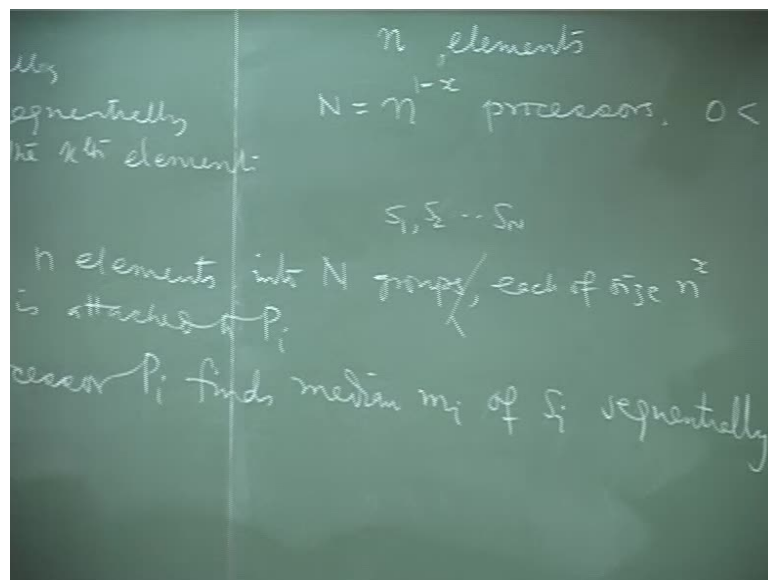 n elements
N = n^{1-x} processors, 0 <
equentially
the kth element
S_1, S_2 ... S_N
n elements into N groups, each of size n^x
is attached to P_i
cessor P_i finds median m_i of S_i sequentially